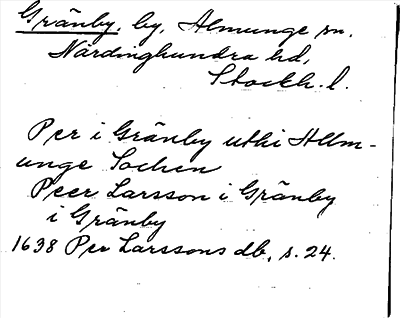 Gränby. by, Almunge sn.
Närdinghundra hd,
Stockh. l.
Per i Gränby uthi Allm-
unge Sochen
Peer Larsson i Gränby
i Gränby
1638 Per Larssons db, s. 24.